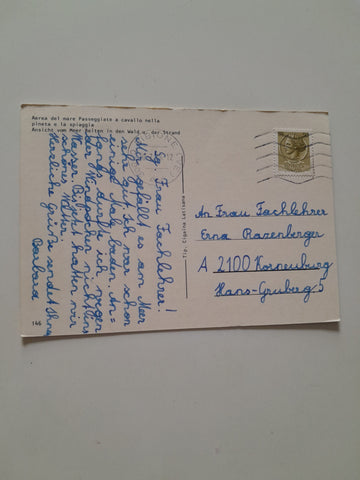 Aerea del mare Passeggiate a cavallo nella
pineta e la spiaggia
Ansicht vom Meer Reiten in den Wald u. der Strand
Sg. Frau Fachlehrer!
Mir gefällt es am Meer
sehr gut. Ich war schon
baden. An-
fangs durfte ich wegen
der Windpocken nicht ins
Wasser. Bis jetzt hatten wir
schönes Wetter.
Herzliche Grüße sendet Ihnen
Barbara
146
Tip. Ciquina Latisana
An Frau Fachlehrer
Erna Razenberger
A 2100 Korneuburg
Hans-Gruberg. 5